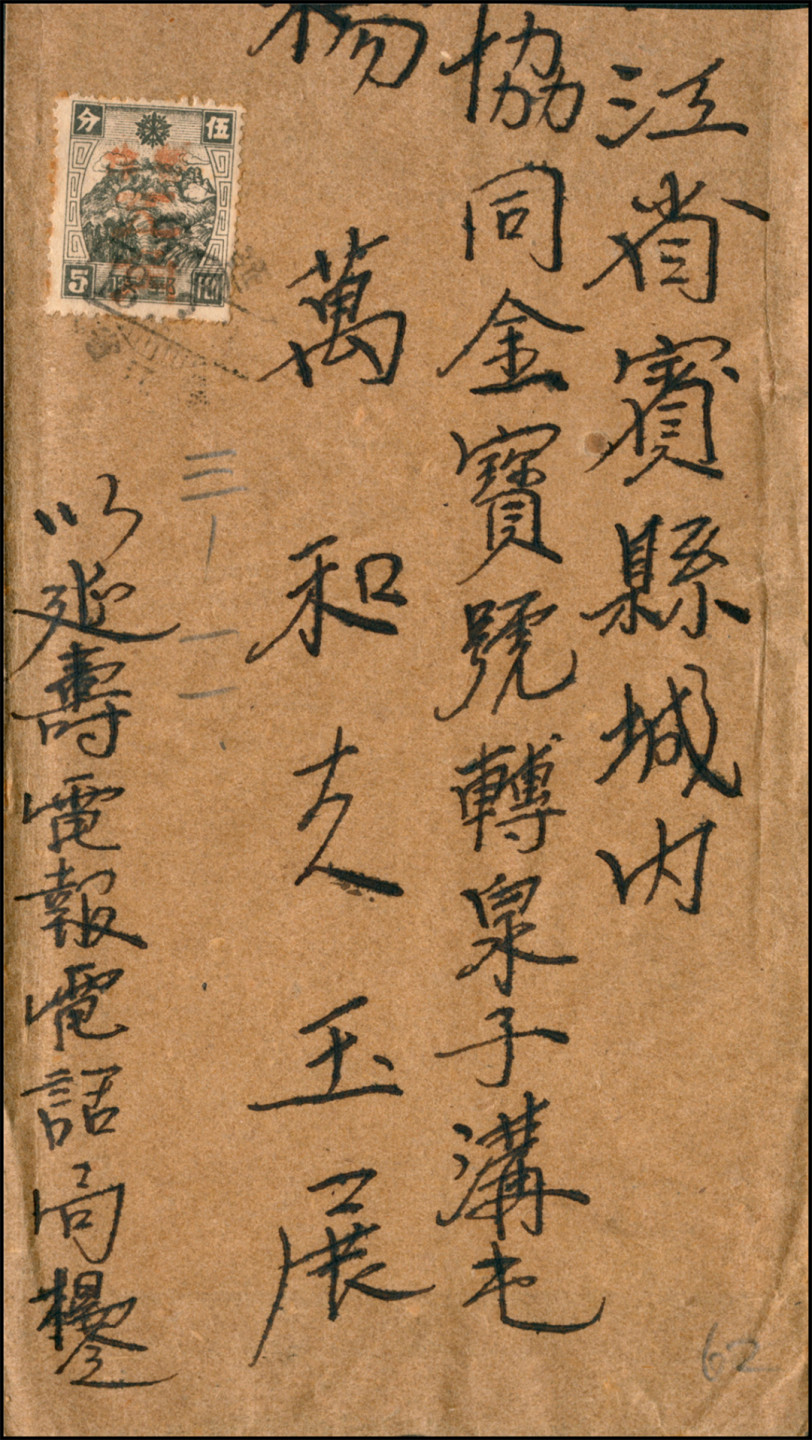 江省賓縣城内
協同金寶號轉泉子溝屯
楊萬和大人玉展
三一 一一
以延壽電報電話局楊
分 伍
5
62